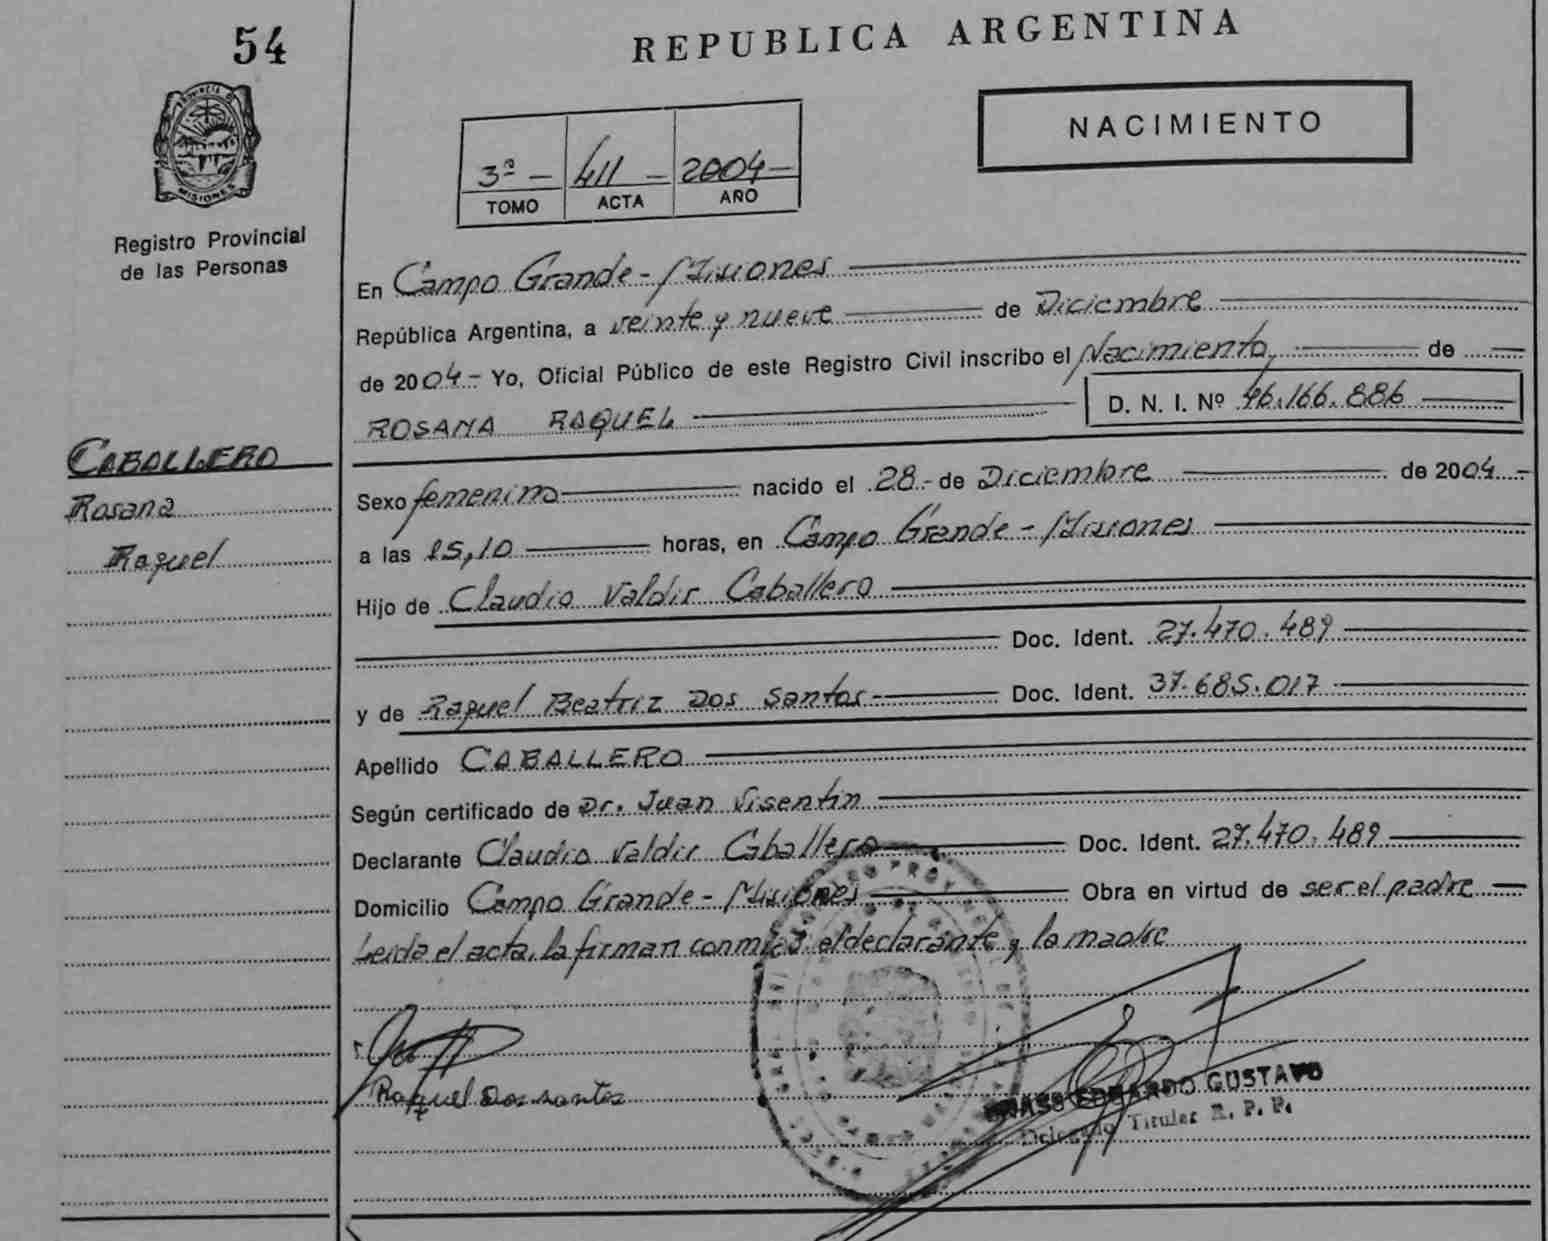 54
REPUBLICA ARGENTINA
NACIMIENTO
3ª - 411 - 2004 -
TOMO ACTA AÑO
PROVINCIA DE
MISIONES
Registro Provincial
de las Personas
En Campo Grande - Misiones
República Argentina, a veinte y nueve de Diciembre
de 2004 - Yo, Oficial Público de este Registro Civil inscribo el Nacimiento, de
ROSANA RAQUEL D. N. I. Nº 46.166.886
CABALLERO
Rosana
Raquel
Sexo femenino nacido el 28 - de Diciembre de 2004 -
a las 15,10 horas, en Campo Grande - Misiones
Hijo de Claudio Valdir Caballero
Doc. Ident. 27.470.489
y de Raquel Beatriz Dos Santos - Doc. Ident. 37.685.017
Apellido CABALLERO
Según certificado de Dr. Juan Visentin
Declarante Claudio Valdir Caballero Doc. Ident. 27.470.489
Domicilio Campo Grande - Misiones Obra en virtud de ser el padre
Leida el acta, la firman conmigo el declarante y la madre
Raquel Dos santos
EDUARDO GUSTAVO
Delegado Titular R. P. P.